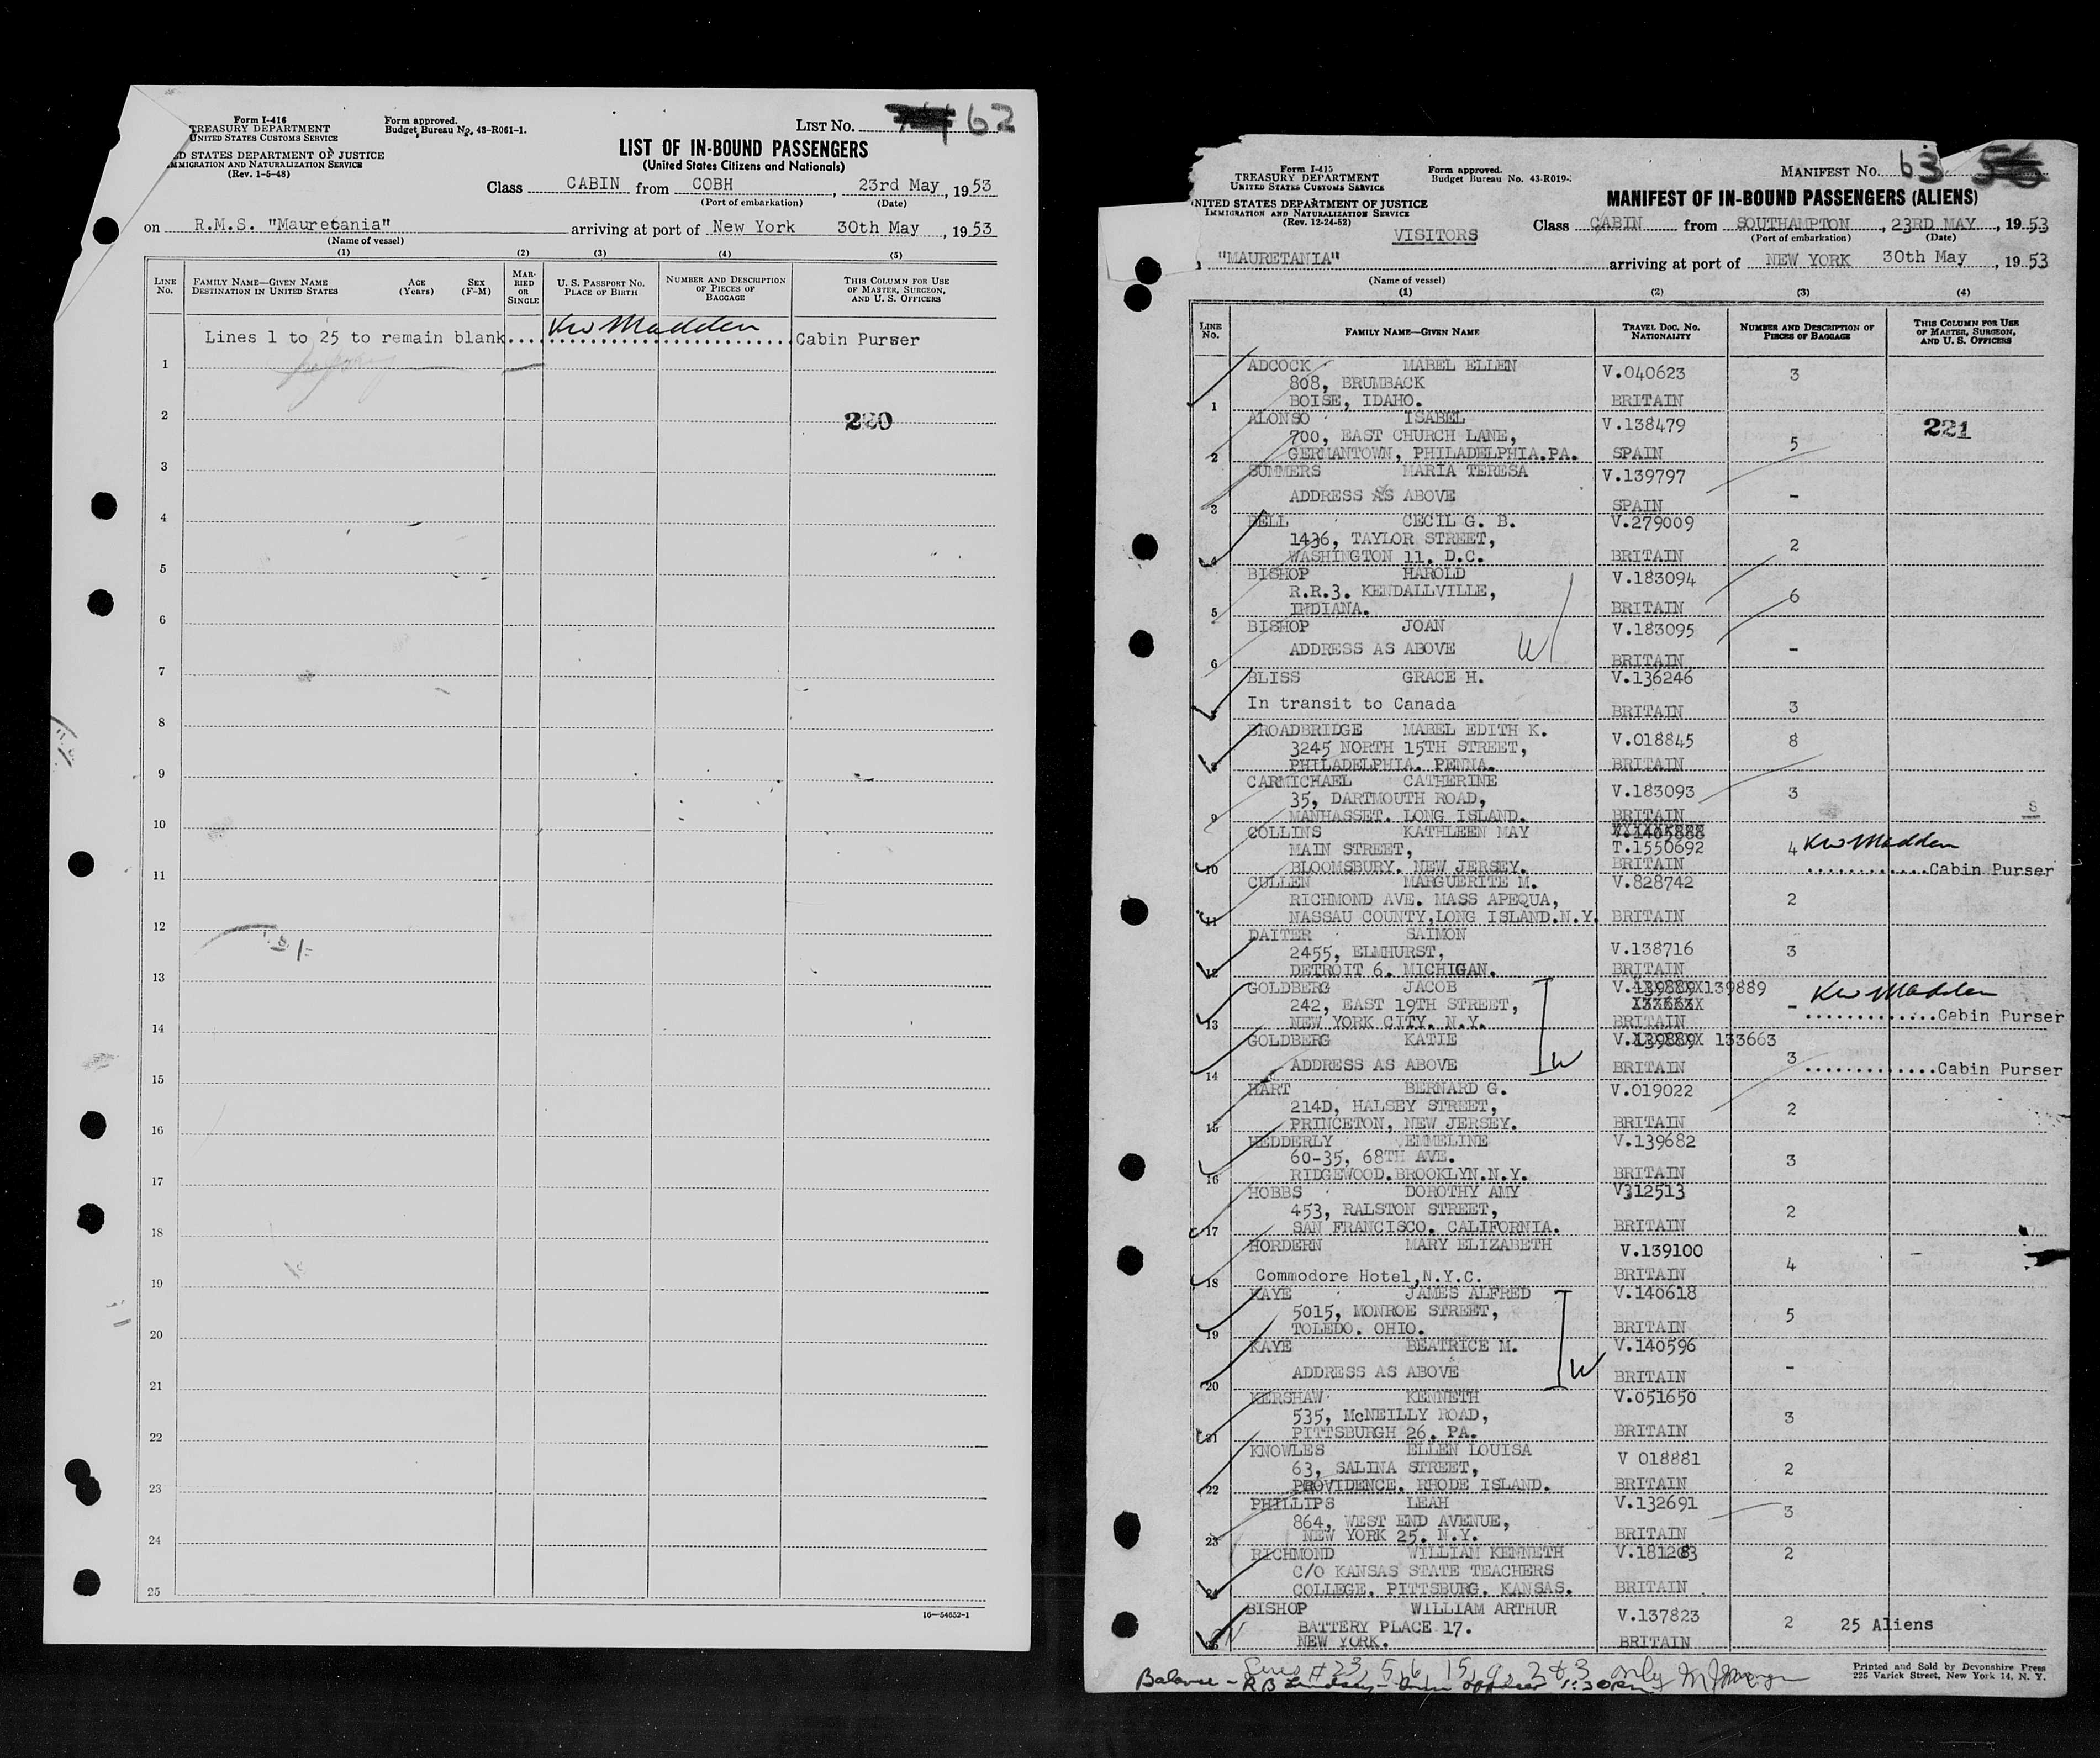 Form I-416
TREASURY DEPARTMENT
UNITED STATES CUSTOMS SERVICE
Form approved.
Budget Bureau No. 43-R061-1.
LIST NO. 62
ED STATES DEPARTMENT OF JUSTICE
IMMIGRATION AND NATURALIZATION SERVICE
(Rev. 1-5-48)
LIST OF IN-BOUND PASSENGERS
(United States Citizens and Nationals)
Class CABIN from COBH, 23rd May, 1953
(Port of embarkation) (Date)
on R.M.S. "Mauretania" arriving at port of New York 30th May, 1953
(Name of vessel)
(1) (2) (3) (4) (5)
LINE No. FAMILY NAME—GIVEN NAME DESTINATION IN UNITED STATES AGE (Years) SEX (F-M) MARRIED OR SINGLE U. S. PASSPORT NO. PLACE OF BIRTH NUMBER AND DESCRIPTION OF PIECES OF BAGGAGE THIS COLUMN FOR USE OF MASTER, SURGEON, AND U. S. OFFICERS
Lines 1 to 25 to remain blank.... KW Madden Cabin Purser
1
2 220
3
4
5
6
7
8
9
10
11
12
13
14
15
16
17
18
19
20
21
22
23
24
25
16—54652-1
Form I-415
TREASURY DEPARTMENT
UNITED STATES CUSTOMS SERVICE
Form approved.
Budget Bureau No. 43-R019-
MANIFEST NO. 63 56
NITED STATES DEPARTMENT OF JUSTICE
IMMIGRATION AND NATURALIZATION SERVICE
(Rev. 12-24-52)
MANIFEST OF IN-BOUND PASSENGERS (ALIENS)
VISITORS
Class CABIN from SOUTHAMPTON, 23RD MAY, 1953
(Port of embarkation) (Date)
"MAURETANIA" arriving at port of NEW YORK 30th May, 1953
(Name of vessel)
(1) (2) (3) (4)
LINE No. FAMILY NAME—GIVEN NAME TRAVEL DOC. NO. NATIONALITY NUMBER AND DESCRIPTION OF PIECES OF BAGGAGE THIS COLUMN FOR USE OF MASTER, SURGEON, AND U. S. OFFICERS
ADCOCK MABEL ELLEN V.040623 3
808, BRUMBACK
1 BOISE, IDAHO. BRITAIN
ALONSO ISABEL V.138479 221
700, EAST CHURCH LANE, 5
2 GERMANTOWN, PHILADELPHIA.PA. SPAIN
SUMMERS MARIA TERESA V.139797
ADDRESS AS ABOVE -
3 SPAIN
BELL CECIL G. B. V.279009
1436, TAYLOR STREET, 2
4 WASHINGTON 11. D.C. BRITAIN
BISHOP HAROLD V.183094
R.R.3. KENDALLVILLE, 6
5 INDIANA. BRITAIN
BISHOP JOAN V.183095
ADDRESS AS ABOVE W -
6 BRITAIN
BLISS GRACE H. V.136246
In transit to Canada BRITAIN 3
BROADBRIDGE MABEL EDITH K. V.018845 8
3245 NORTH 15TH STREET,
8 PHILADELPHIA. PENNA. BRITAIN
CARMICHAEL CATHERINE V.183093 3
35, DARTMOUTH ROAD,
9 MANHASSET. LONG ISLAND. BRITAIN
COLLINS KATHLEEN MAY
MAIN STREET, T.1550692 4 KW Madden
10 BLOOMSBURY. NEW JERSEY. BRITAIN ............Cabin Purser
CULLEN MARGUERITE M. V.828742
RICHMOND AVE. MASS APEQUA, 2
11 NASSAU COUNTY,LONG ISLAND.N.Y. BRITAIN
DAITER SAIMON
2455, ELMHURST, V.138716 3
12 DETROIT 6. MICHIGAN. BRITAIN
GOLDBERG JACOB V.139889 KW Madden
242, EAST 19TH STREET, -
13 NEW YORK CITY. N.Y. BRITAIN .............Cabin Purser
GOLDBERG KATIE V. 133663
ADDRESS AS ABOVE W BRITAIN 3 .............Cabin Purser
14
HART BERNARD G. V.019022
214D, HALSEY STREET, 2
15 PRINCETON, NEW JERSEY. BRITAIN
HEDDERLY EMMELINE V.139682
60-35, 68TH AVE. 3
16 RIDGEWOOD.BROOKLYN.N.Y. BRITAIN
HOBBS DOROTHY AMY V312513
453, RALSTON STREET, 2
17 SAN FRANCISCO. CALIFORNIA. BRITAIN
HORDERN MARY ELIZABETH V.139100
4
18 Commodore Hotel,N.Y.C. BRITAIN
KAYE JAMES ALFRED V.140618
5015, MONROE STREET, 5
19 TOLEDO. OHIO. BRITAIN
KAYE BEATRICE M. V.140596
ADDRESS AS ABOVE W -
20 BRITAIN
KERSHAW KENNETH V.051650
535, McNEILLY ROAD, 3
21 PITTSBURGH 26. PA. BRITAIN
KNOWLES ELLEN LOUISA V 018881
63, SALINA STREET, 2
22 PROVIDENCE. RHODE ISLAND. BRITAIN
PHILLIPS LEAH V.132691
864, WEST END AVENUE, 3
23 NEW YORK 25. N.Y. BRITAIN
RICHMOND WILLIAM KENNETH V.181283 2
C/O KANSAS STATE TEACHERS
24 COLLEGE. PITTSBURG. KANSAS. BRITAIN
BISHOP WILLIAM ARTHUR V.137823
BATTERY PLACE 17. 2 25 Aliens
NEW YORK. BRITAIN
Lines #23, 5, 6, 15, 9, 2 & 3 only
Balance - RB Lindsay - 1:30 PM
Printed and Sold by Devonshire Press
225 Varick Street, New York 14, N. Y.